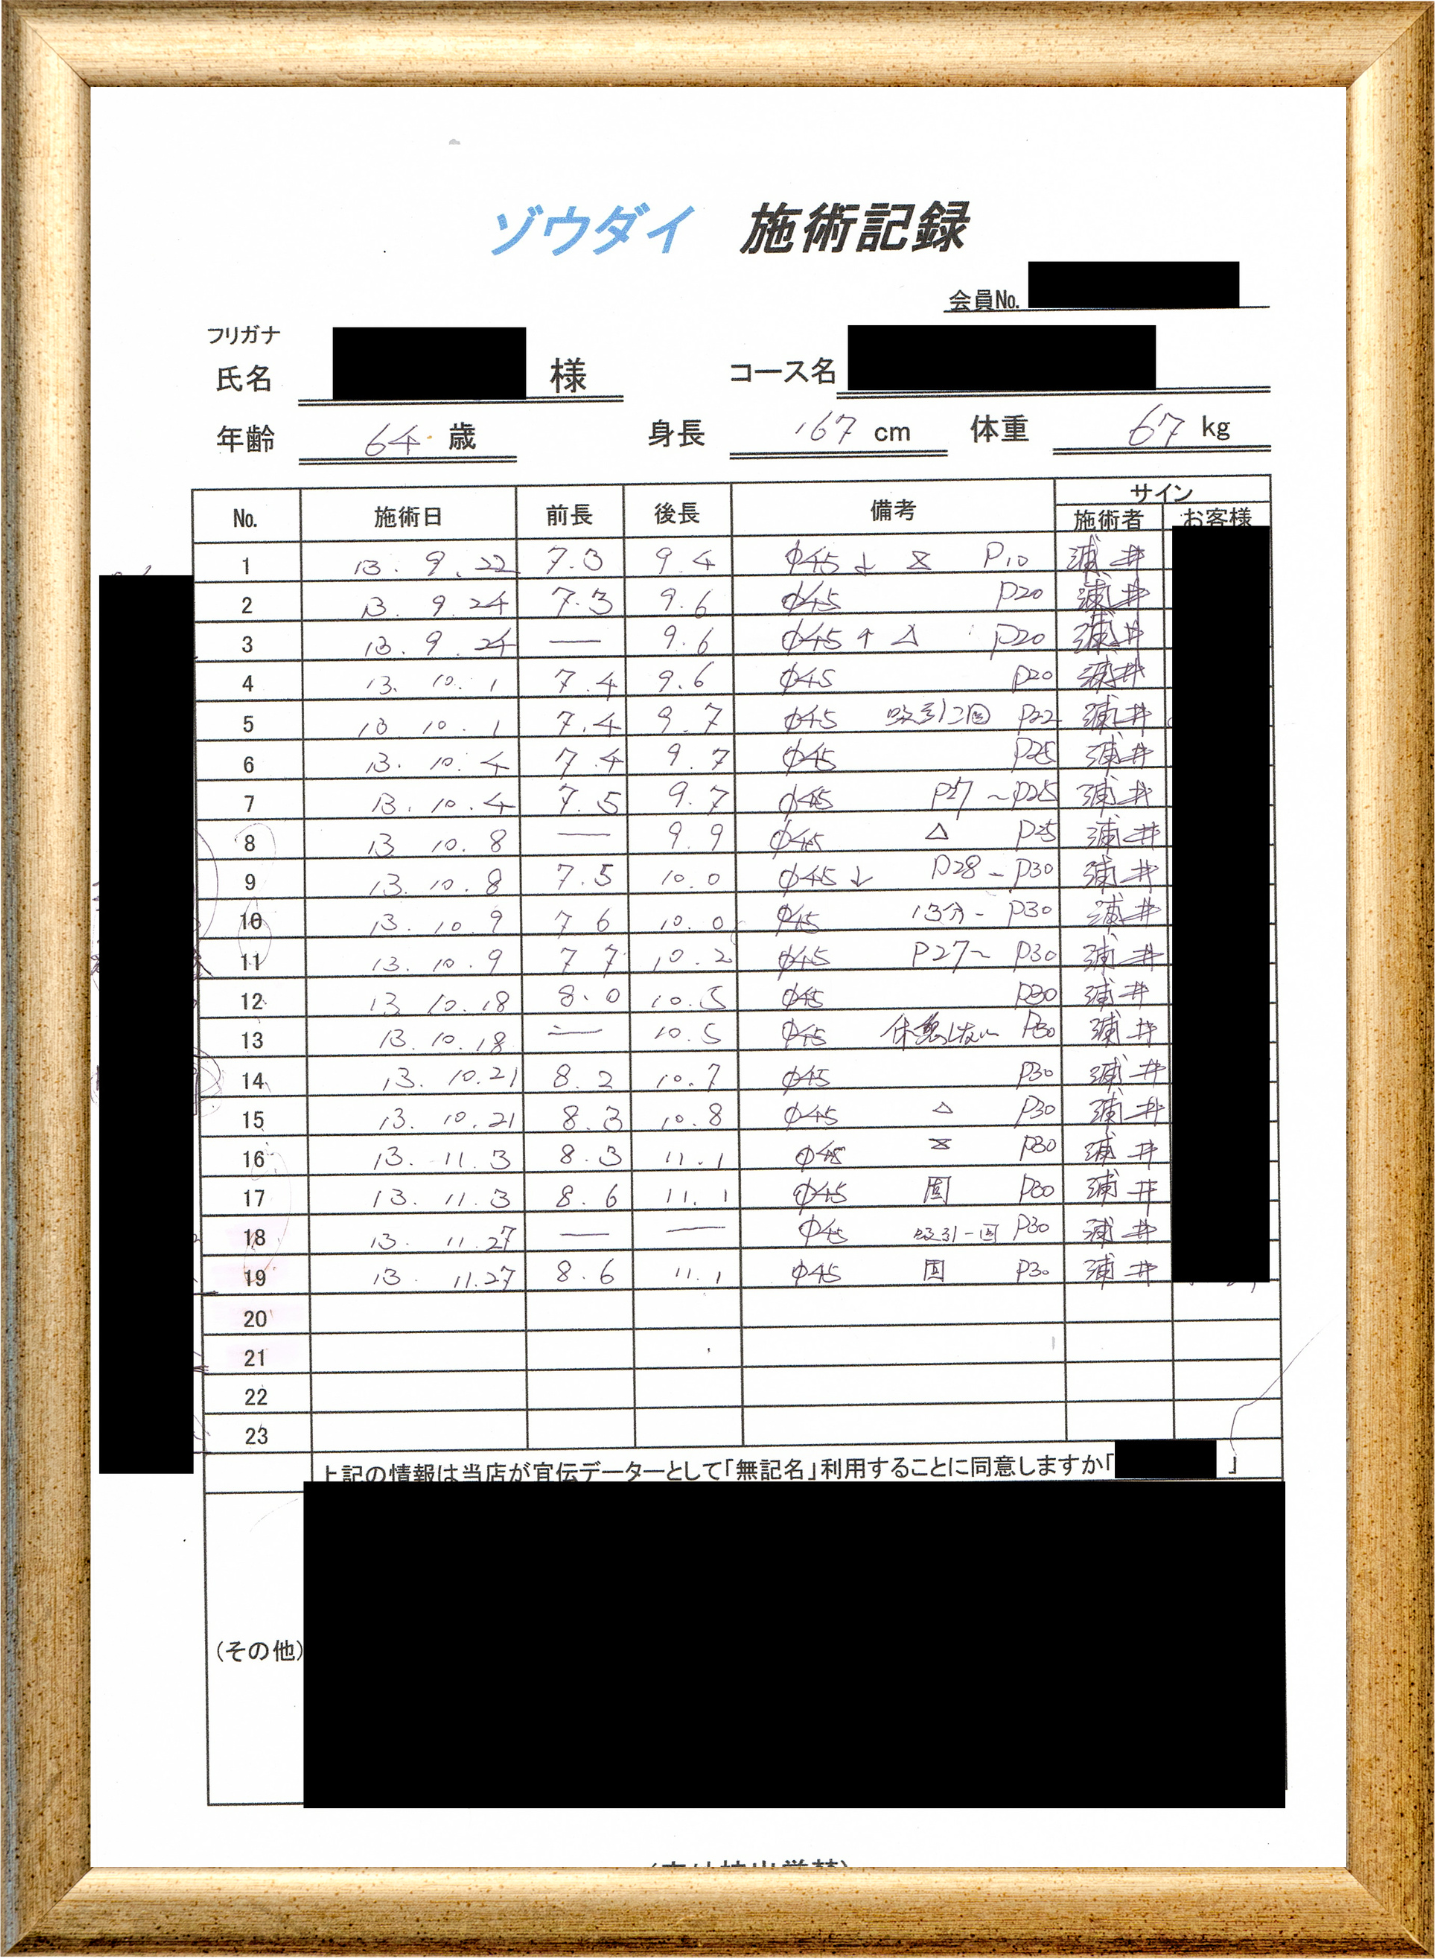 ゾウダイ 施術記録
会員No.
フリガナ
氏名 様 コース名
年齢 64 歳 身長 167 cm 体重 67 kg
No. 施術日 前長 後長 備考 サイン
施術者 お客様
1 13. 9. 22 7.3 9.4 φ45 ↓ P10 浦井
2 13. 9. 24 7.3 9.6 φ45 P20 浦井
3 13. 9. 24 — 9.6 φ45 ↑ △ P20 浦井
4 13. 10. 1 7.4 9.6 φ45 P20 浦井
5 13 10. 1 7.4 9.7 φ45 吸引二回 P22 浦井
6 13. 10. 4 7.4 9.7 φ45 P25 浦井
7 13. 10. 4 7.5 9.7 φ45 P27 ~ P25 浦井
8 13 10. 8 — 9.9 φ45 △ P25 浦井
9 13. 10. 8 7.5 10.0 φ45 ↓ P28 - P30 浦井
10 13. 10. 9 7 6 10.0 φ45 13分 - P30 浦井
11 13. 10. 9 7 7 10.2 φ45 P27~ P30 浦井
12 13 10. 18 8.0 10.5 φ45 P30 浦井
13 13. 10. 18 — 10.5 φ45 休憩しない P30 浦井
14 13. 10.21 8.2 10.7 φ45 P30 浦井
15 13. 10.21 8.3 10.8 φ45 △ P30 浦井
16 13. 11. 3 8.3 11.1 φ45 P30 浦井
17 13. 11. 3 8.6 11.1 φ45 P30 浦井
18 13. 11.27 — — φ45 吸引一回 P30 浦井
19 13. 11.27 8.6 11.1 φ45 P30 浦井
20
21
22
23
上記の情報は当店が宣伝データーとして「無記名」利用することに同意しますか「 」
(その他)